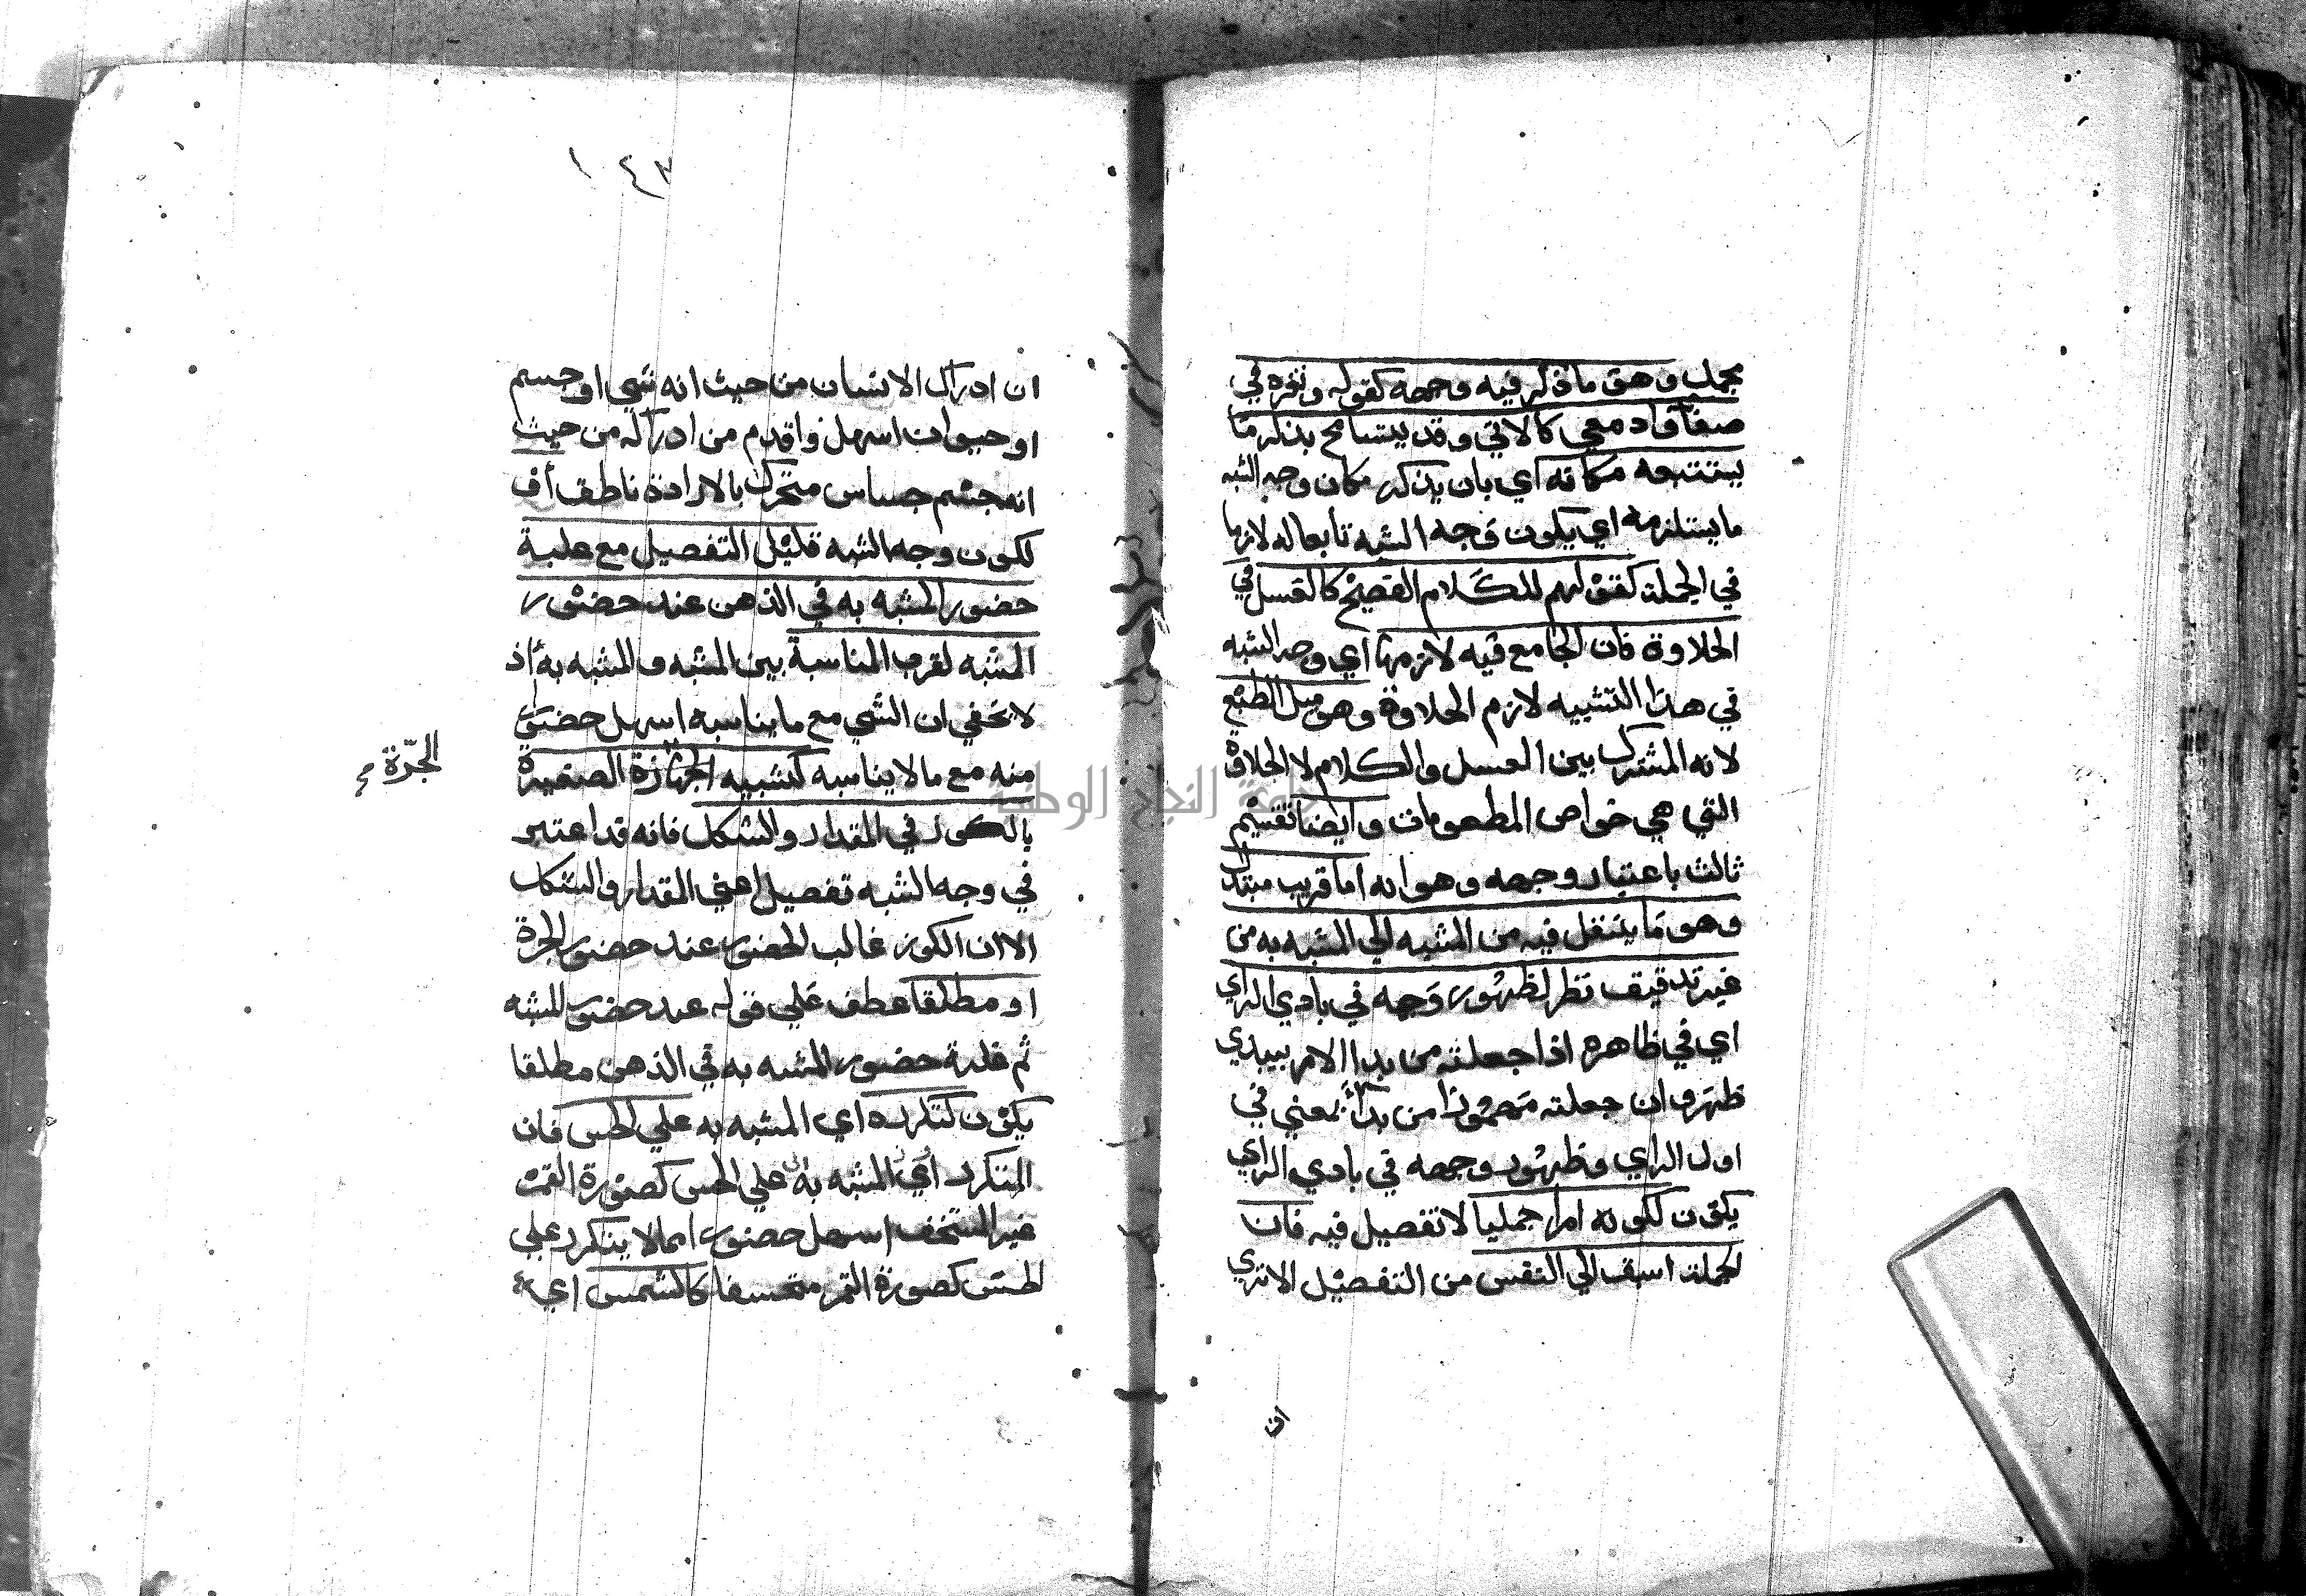 مجمل وهو ما ذكر فيه وجهه كقوله وثغره في
صفا وادمعي كالالي وقد يتسامح بذكر ما
يستتبعه مكانه اي بان يذكر مكان وجه الشبه
ما يستلزمه اي يكون وجه الشبه تابعا له لازما
في الجملة كقولهم للكلام الفصيح كالعسل في
الحلاوة فان الجامع فيه لازمها اي وجه الشبه
في هذا التشبيه لازم الحلاوة وهو ميل الطبع
لانه المشترك بين العسل والكلام لا الحلاوة
التي هي خواص المطعومات وايضا تقسيم
ثالث باعتبار وجهه وهو انه اما قريب مبتذل
وهو ما ينتقل فيه من المشبه الي المشبه به من
غير تدقيق نظر لظهور وجهه في بادي الراي
اي في ظاهره اذا جعلته من بدا الامر يبدي
ظهر وان جعلته مهموزا من بدأ بمعني في
اول الراي وظهور وجهه في بادي الراي
يكون لكونه امرا جمليا لا تفصيل فيه فان
لجملة اسبق الي النفس من التفصيل الا تري
ان
١٤٣
ان ادراك الانسان من حيث انه شي او جسم
او حيوان اسهل واقدم من ادراكه من حيث
انه جسم حساس متحرك بالارادة ناطق أو
لكون وجه الشبه قليل التفصيل مع غلبة
حضور المشبه به في الذهن عند حضور
المشبه لقرب المناسبة بين المشبه والمشبه به أذ
لا يخفي ان الشي مع ما يناسبه اسهل حضورا
منه مع ما لا يناسبه كتشبيه الصغيرة
الجرّة صح
بالكوز في المقدار والشكل فانه قد اعتبر
في وجه الشبه تفصيل اعني المقدار والشكل
الا ان الكوز غالب الحضور عند حضور الجرة
او مطلقا عطف علي قوله عند حضور المشبه
ثم غلبة حضور المشبه به في الذهن مطلقا
يكون لتكرره اي المشبه به علي الحس فان
المتكرر أي المشبه به علي الحس كصورة القمر
غير المنخسف اسهل حضورا مما لا يتكرر علي
لحس كصورة القمر منخسفا كالشمس اي